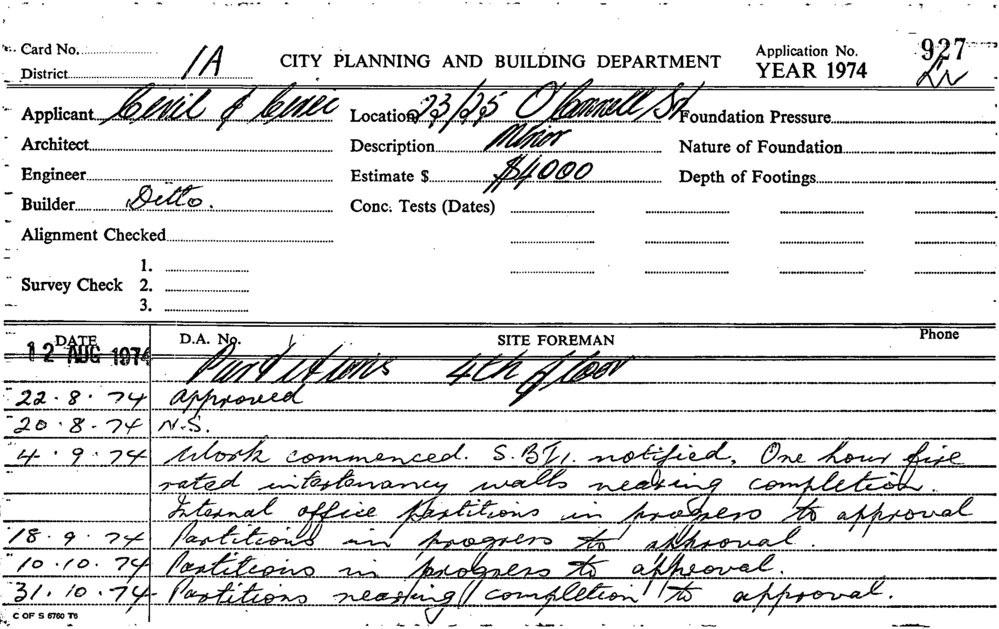 Card No.
District 1A
CITY PLANNING AND BUILDING DEPARTMENT
Application No. 927
YEAR 1974
Applicant Civil & Civic
Location 23/25 O'Connell St
Foundation Pressure
Architect
Description Minor
Nature of Foundation
Engineer
Estimate $ $4000
Depth of Footings
Builder Ditto.
Conc. Tests (Dates)
Alignment Checked
Survey Check
1.
2.
3.
DATE D.A. No. SITE FOREMAN Phone
12 AUG 1974 Partitions 4th floor
22.8.74 Approved
20.8.74 N.S.
4.9.74 Work commenced. notified, One hour fire
rated intertenancy walls nearing completion.
Internal office partitions in progress to approval
18.9.74 Partitions in progress to approval.
10.10.74 Partitions in progress to approval.
31.10.74 Partitions nearing completion to approval.
C OF S 5760 T6